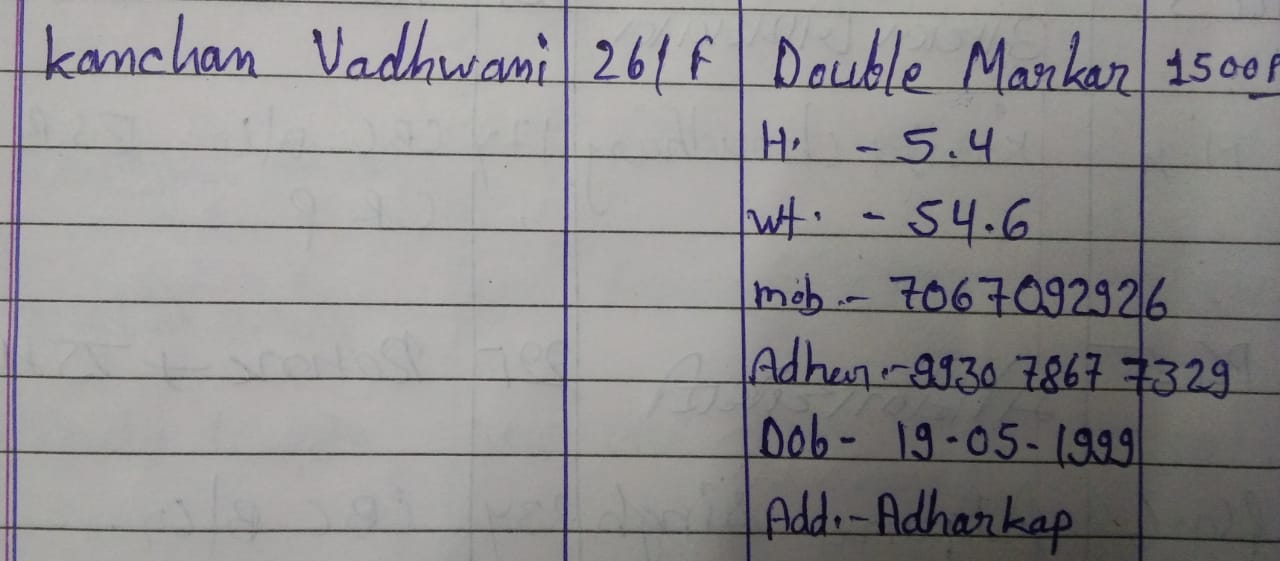 Kanchan Vadhwani 26/F Double Markar 1500P
H. - 5.4
Wt. - 54.6
Mob.- 7067092926
Adhar.- 9930 7867 7329
Dob- 19-05-1999
Add.- Adharkap